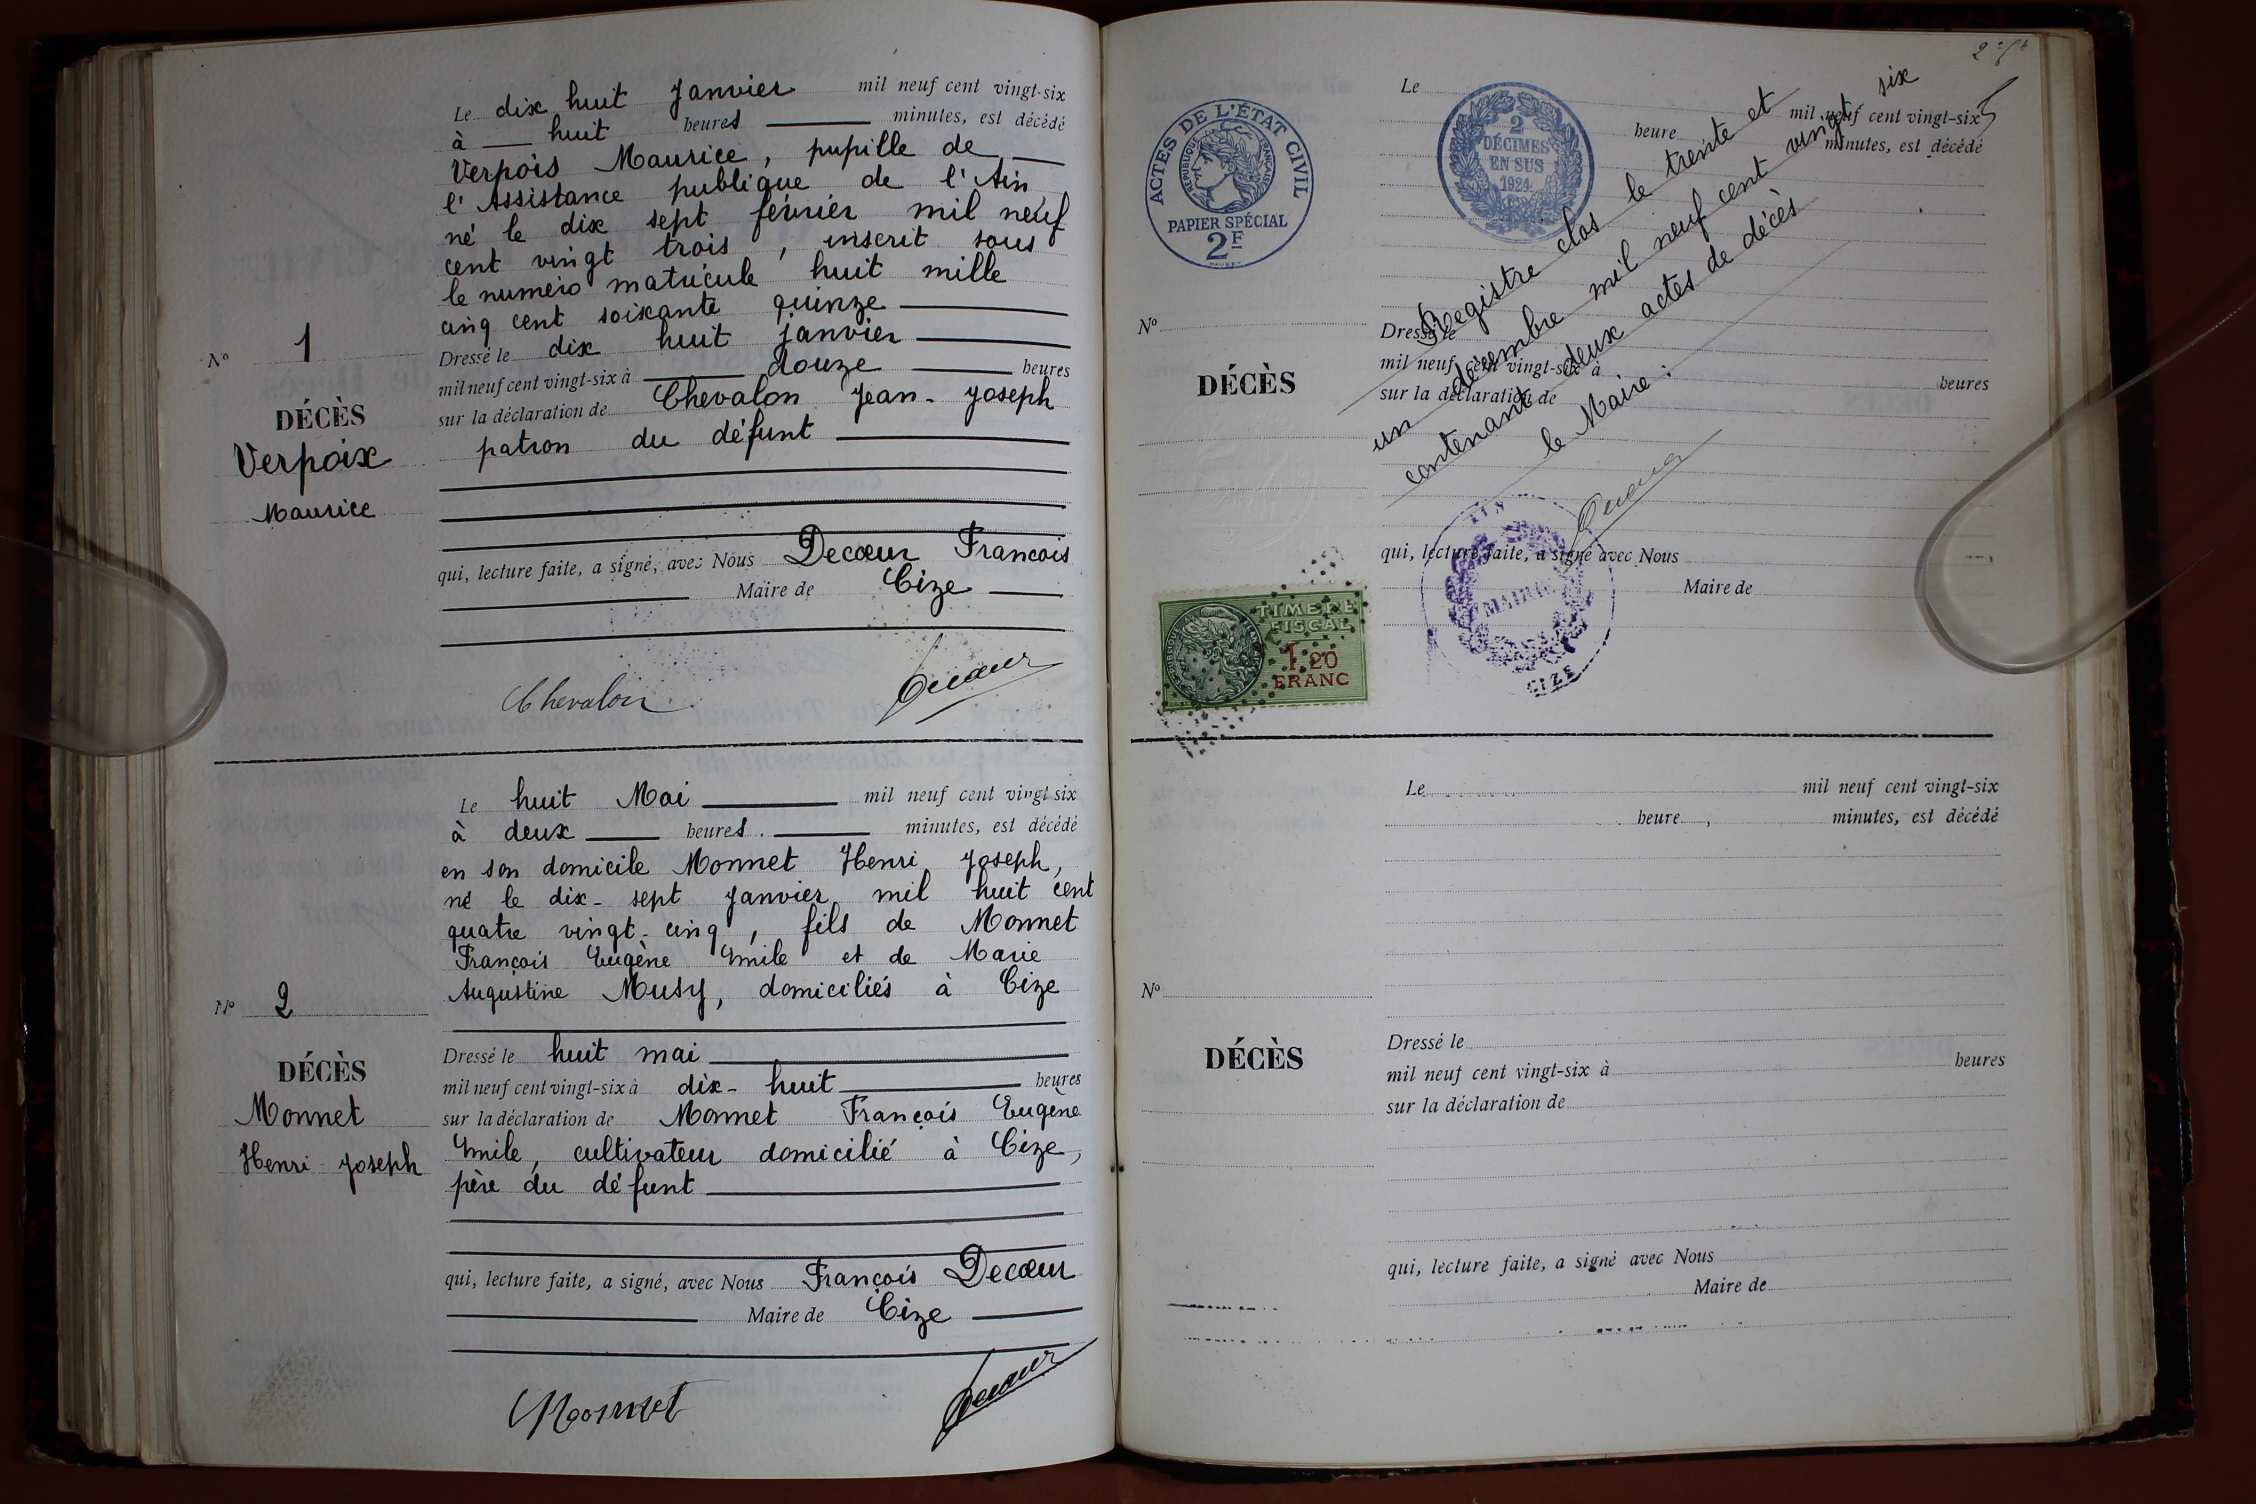 Le dix huit Janvier mil neuf cent vingt-six
à huit heures minutes, est décédé
Verpois Maurice, pupille de
l'Assistance publique de l'Ain
né le dix sept février mil neuf
cent vingt trois, inscrit sous
le numéro matricule huit mille
cinq cent soixante quinze
Nº 1
Dressé le dix huit janvier
mil neuf cent vingt-six à douze heures
DÉCÈS
sur la déclaration de Chevalon Jean-Joseph
Verpoix
patron du défunt
Maurice
qui, lecture faite, a signé, avec Nous Decœur Francois
Maire de Cize
Chevalon
Decœur
Le huit Mai mil neuf cent vingt six
à deux heures minutes, est décédé
en son domicile Monnet Henri Joseph,
né le dix-sept Janvier mil huit cent
quatre vingt-cinq, fils de Monnet
François Eugène Emile et de Marie
Augustine Musy, domiciliés à Cize
Nº 2
Dressé le huit mai
DÉCÈS
mil neuf cent vingt-six à dix-huit heures
Monnet
sur la déclaration de Monnet François Eugène
Henri-Joseph
Emile, cultivateur domicilié à Cize,
père du défunt
qui, lecture faite, a signé, avec Nous François Decœur
Maire de Cize
Monnet
Decœur
Le mil neuf cent vingt-six
heure minutes, est décédé
ACTES DE L'ÉTAT CIVIL
RÉPUBLIQUE FRANÇAISE
PAPIER SPÉCIAL
2F
2
DÉCIMES
EN SUS
1924
Registre clos le trente et
un décembre mil neuf cent vingt six
contenant deux actes de décès
le Maire :
Decœur
Nº
DÉCÈS
Dressé le
mil neuf cent vingt-six à heures
sur la déclaration de
qui, lecture faite, a signé avec Nous
Maire de
AIN
MAIRIE
CIZE
TIMBRE
FISCAL
1.20
FRANC
Le mil neuf cent vingt-six
heure minutes, est décédé
Nº
DÉCÈS
Dressé le
mil neuf cent vingt-six à heures
sur la déclaration de
qui, lecture faite, a signé avec Nous
Maire de